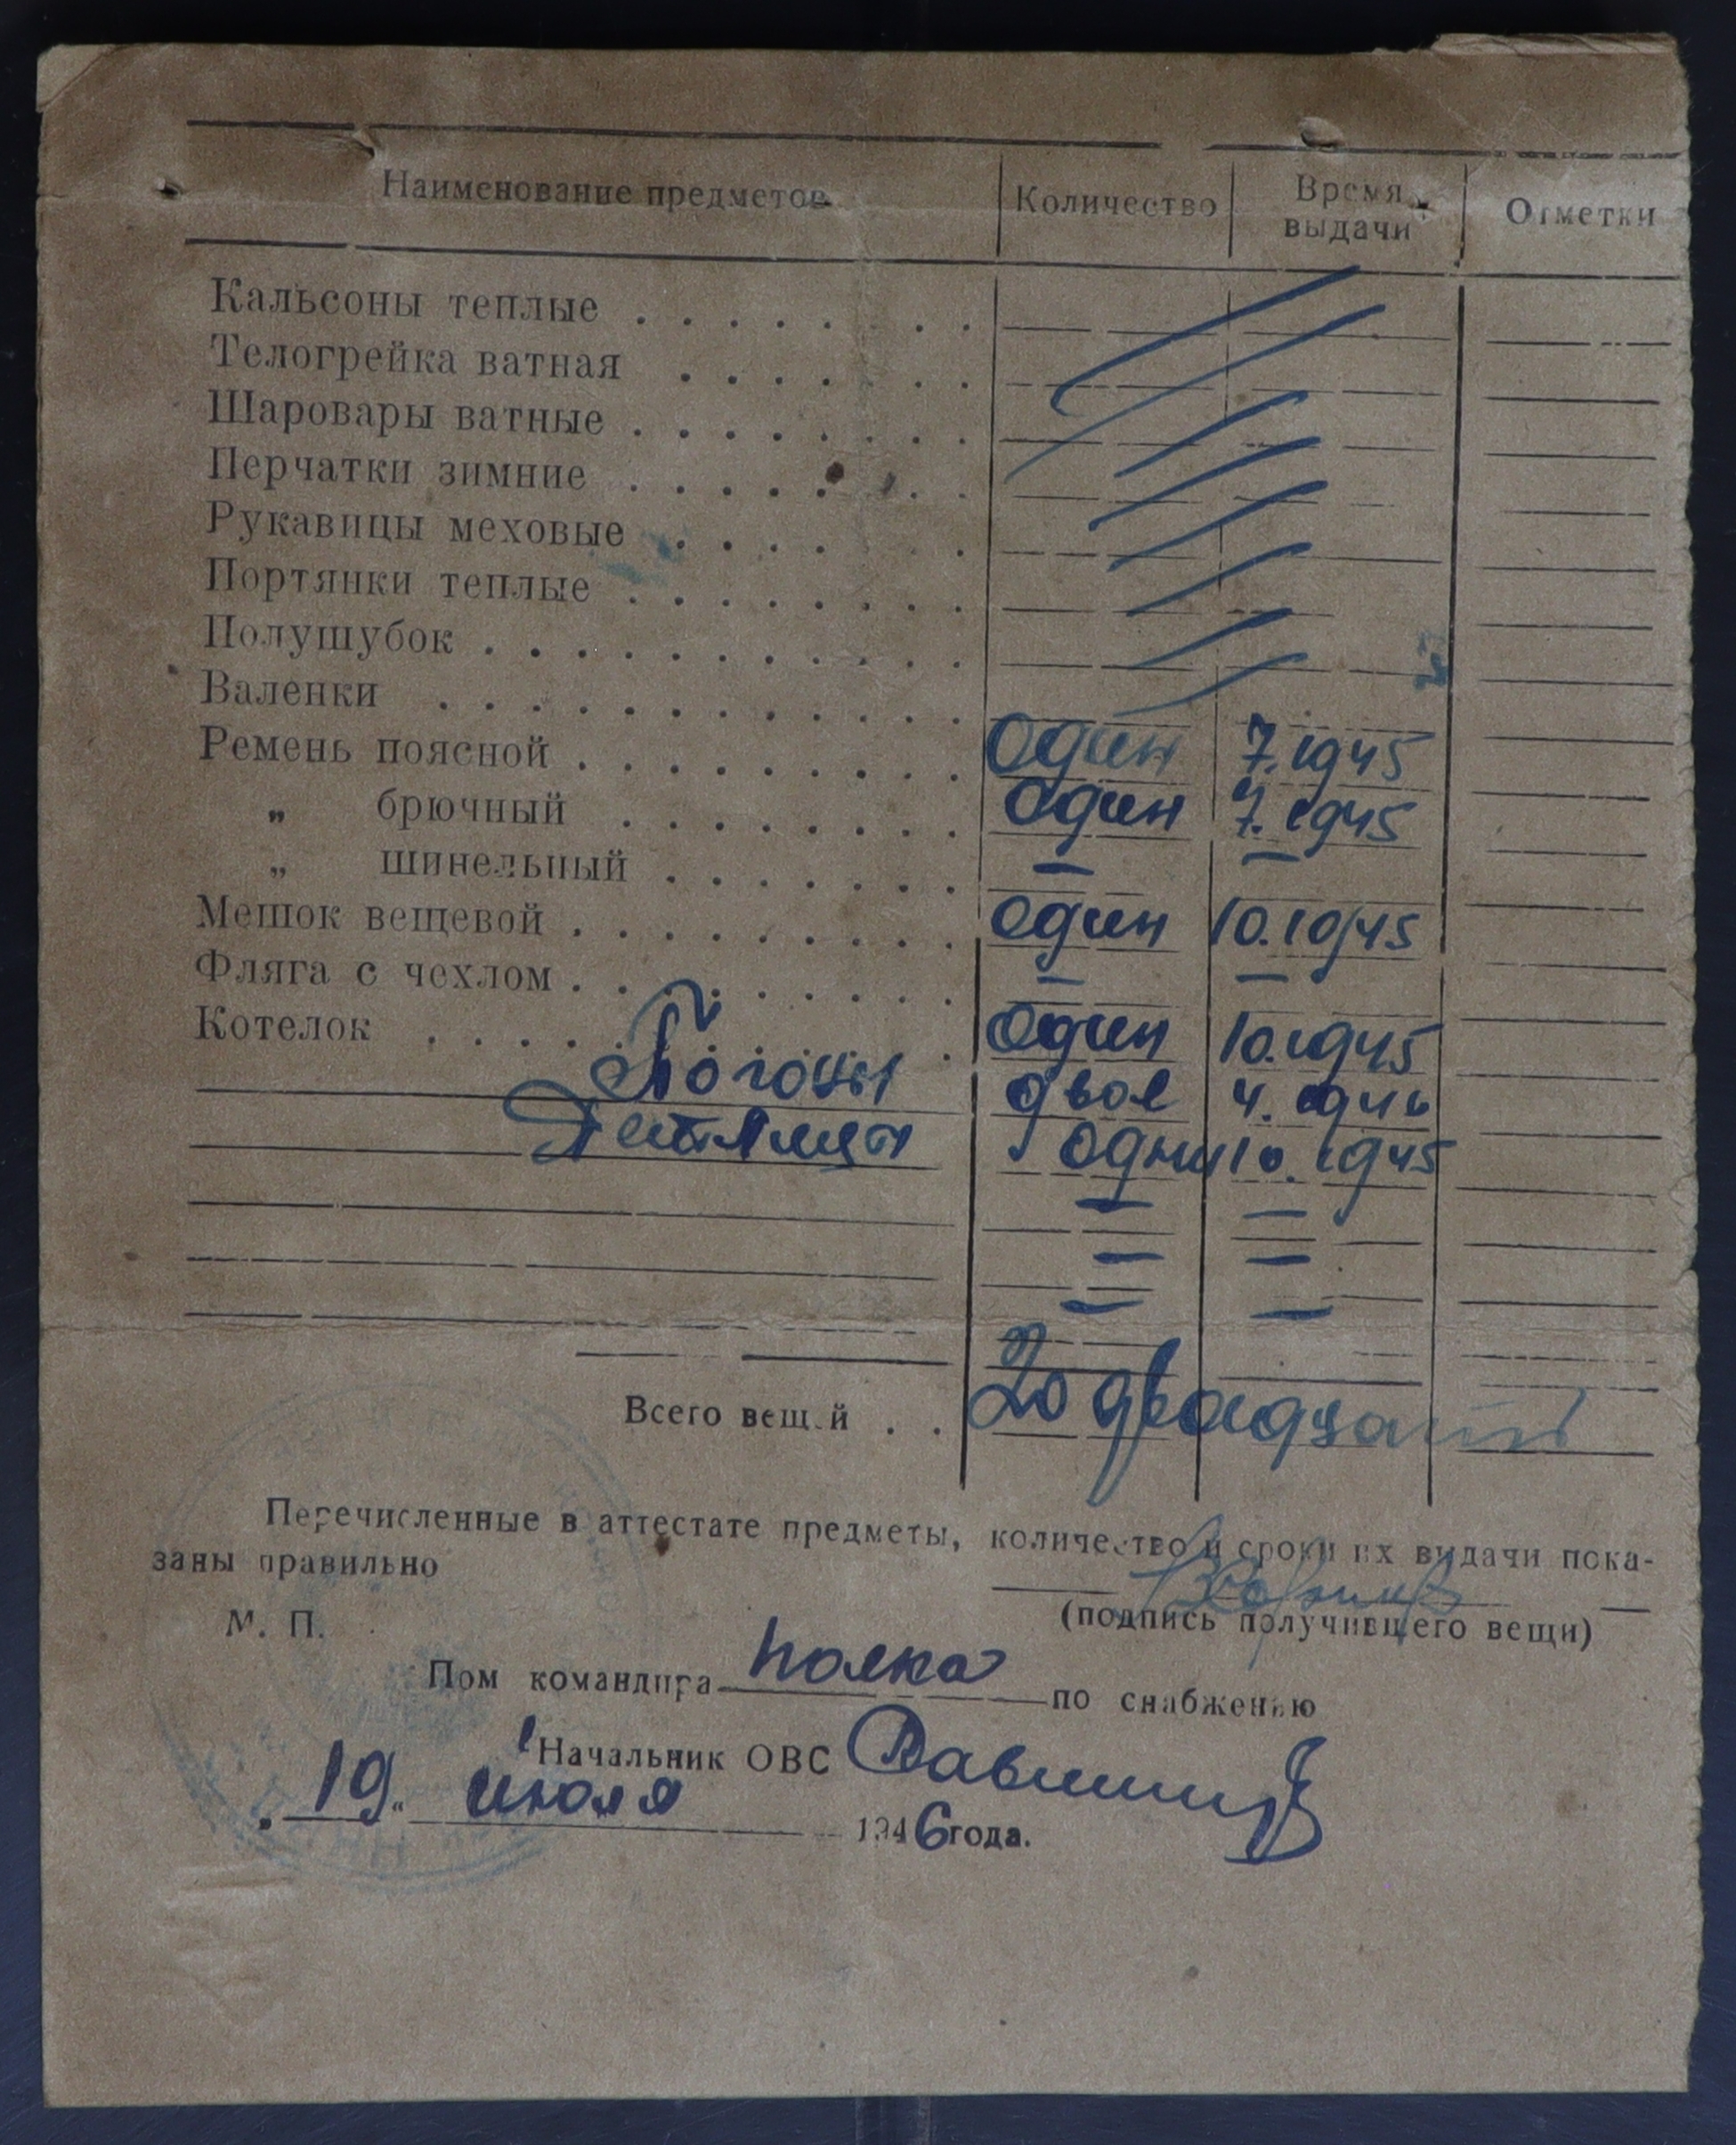 Наименование предметов Количество Время выдачи Отметки
Кальсоны теплые . . . . . . . .
Телогрейка ватная . . . . . . .
Шаровары ватные . . . . . . . .
Перчатки зимние . . . . . . . .
Рукавицы меховые . . . . .
Портянки теплые . . . . . . . .
Полушубок . . . . . . . . . . .
Валенки . . . . . . . . . . . .
Ремень поясной . . . . . . . . . один 7.1945
„ брючный . . . . . . . . один 7.1945
„ шинельный . . . . . . . — —
Мешок вещевой . . . . . . . . . один 10.1945
Фляга с чехлом . . . . . . . . . — —
Котелок . . . . . . . . . . . один 10.1945
Погоны двое 4.1946
Петлицы одни 10.1945
— —
— —
— —
Всего вещей . . 20 двадцать
Перечисленные в аттестате предметы, количество и сроки их выдачи пока-
заны правильно
(подпись получившего вещи)
М. П.
Пом командира полка по снабжению
Начальник ОВС
„19“ июля 1946 года.